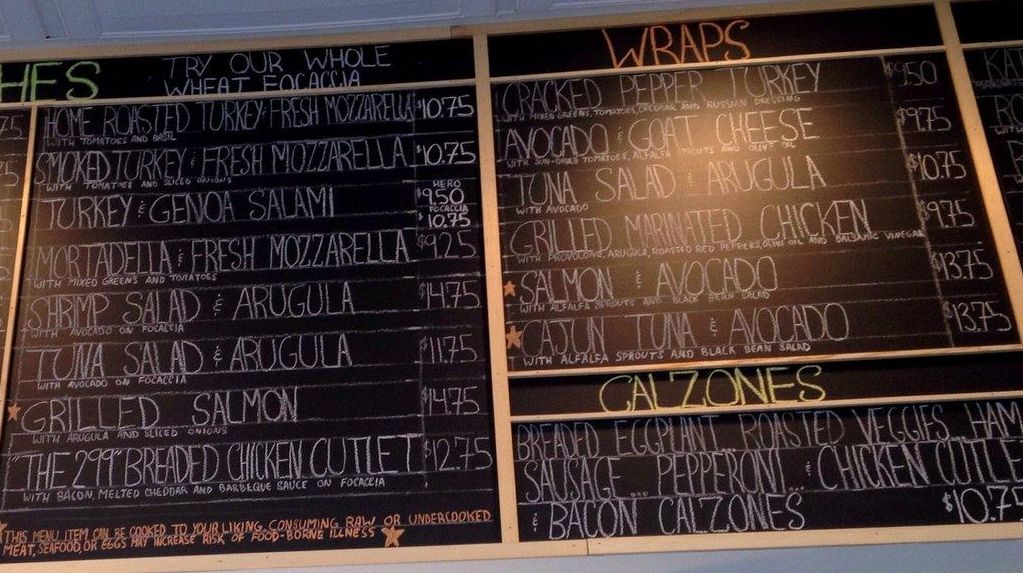 HES
TRY OUR WHOLE
WHEAT FOCACCIA
HOME ROASTED TURKEY & FRESH MOZZARELLA $10.75
WITH TOMATOES AND BASIL
SMOKED TURKEY & FRESH MOZZARELLA $10.75
WITH TOMATOES AND SLICED ONIONS
TURKEY & GENOA SALAMI HERO $9.50
FOCACCIA $10.75
MORTADELLA & FRESH MOZZARELLA $9.25
WITH MIXED GREENS AND TOMATOES
SHRIMP SALAD & ARUGULA $14.75
WITH AVOCADO ON FOCACCIA
TUNA SALAD & ARUGULA $11.75
WITH AVOCADO ON FOCACCIA
GRILLED SALMON $14.75
WITH ARUGULA AND SLICED ONIONS
THE "299" BREADED CHICKEN CUTLET $12.75
WITH BACON, MELTED CHEDDAR AND BARBEQUE SAUCE ON FOCACCIA
THIS MENU ITEM CAN BE COOKED TO YOUR LIKING. CONSUMING RAW OR UNDERCOOKED
MEAT, SEAFOOD, OR EGGS MAY INCREASE RISK OF FOOD-BORNE ILLNESS
WRAPS
CRACKED PEPPER TURKEY $9.50
WITH MIXED GREENS, TOMATOES, AND RUSSIAN DRESSING
AVOCADO & GOAT CHEESE $9.75
WITH SUN-DRIED TOMATOES, ALFALFA SPROUTS AND OLIVE OIL
TUNA SALAD & ARUGULA $10.75
WITH AVOCADO
GRILLED MARINATED CHICKEN $9.75
WITH PROVOLONE, ARUGULA, ROASTED RED PEPPERS, OLIVE OIL AND BALSAMIC VINEGAR
SALMON & AVOCADO $13.75
WITH ALFALFA SPROUTS AND BLACK BEAN SALAD
CAJUN TUNA & AVOCADO $13.75
WITH ALFALFA SPROUTS AND BLACK BEAN SALAD
CALZONES
BREADED EGGPLANT ROASTED VEGGIES... HAM
SAUSAGE... PEPPERONI... & CHICKEN CUTLE
& BACON CALZONES $10.75